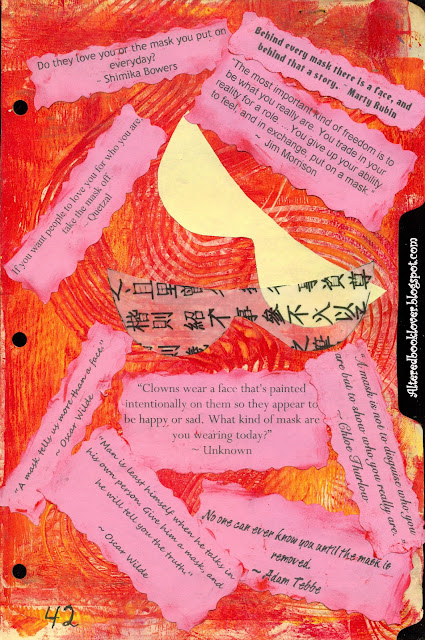 Do they love you or the mask you put on
everyday?
~ Shimika Bowers
Behind every mask there is a face, and
behind that a story. - Marty Rubin
"The most important kind of freedom is to
be what you really are. You trade in your
reality for a role.... You give up your ability
to feel, and in exchange, put on a mask."
~ Jim Morrison
If you want people to love you for who you are,
take the mask off"
~ Quetzal
楷則紹不 不火以
Alteredbooklover.blogspot.com
"A mask tells us more than a face"
~ Oscar Wilde
"Clowns wear a face that's painted
intentionally on them so they appear to
be happy or sad. What kind of mask are
you wearing today?"
~ Unknown
"A mask is not to disguise who you
are but to show who you really are."
~ Chloe Thurlow
"Man is least himself when he talks in
his own person. Give him a mask, and
he will tell you the truth."
~ Oscar Wilde
No one can ever know you until the mask is
removed.
~ Adam Tebbe
42